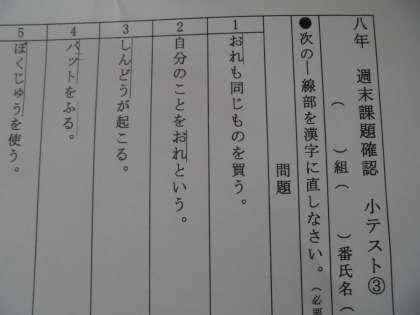 八年 週末課題確認 小テスト③
( )組( )番氏名(
●次の―線部を漢字に直しなさい。(必要
問題
1 おれも同じものを買う。
2 自分のことをおれという。
3 しんどうが起こる。
4 バットをふる。
5 ぼくじゅうを使う。